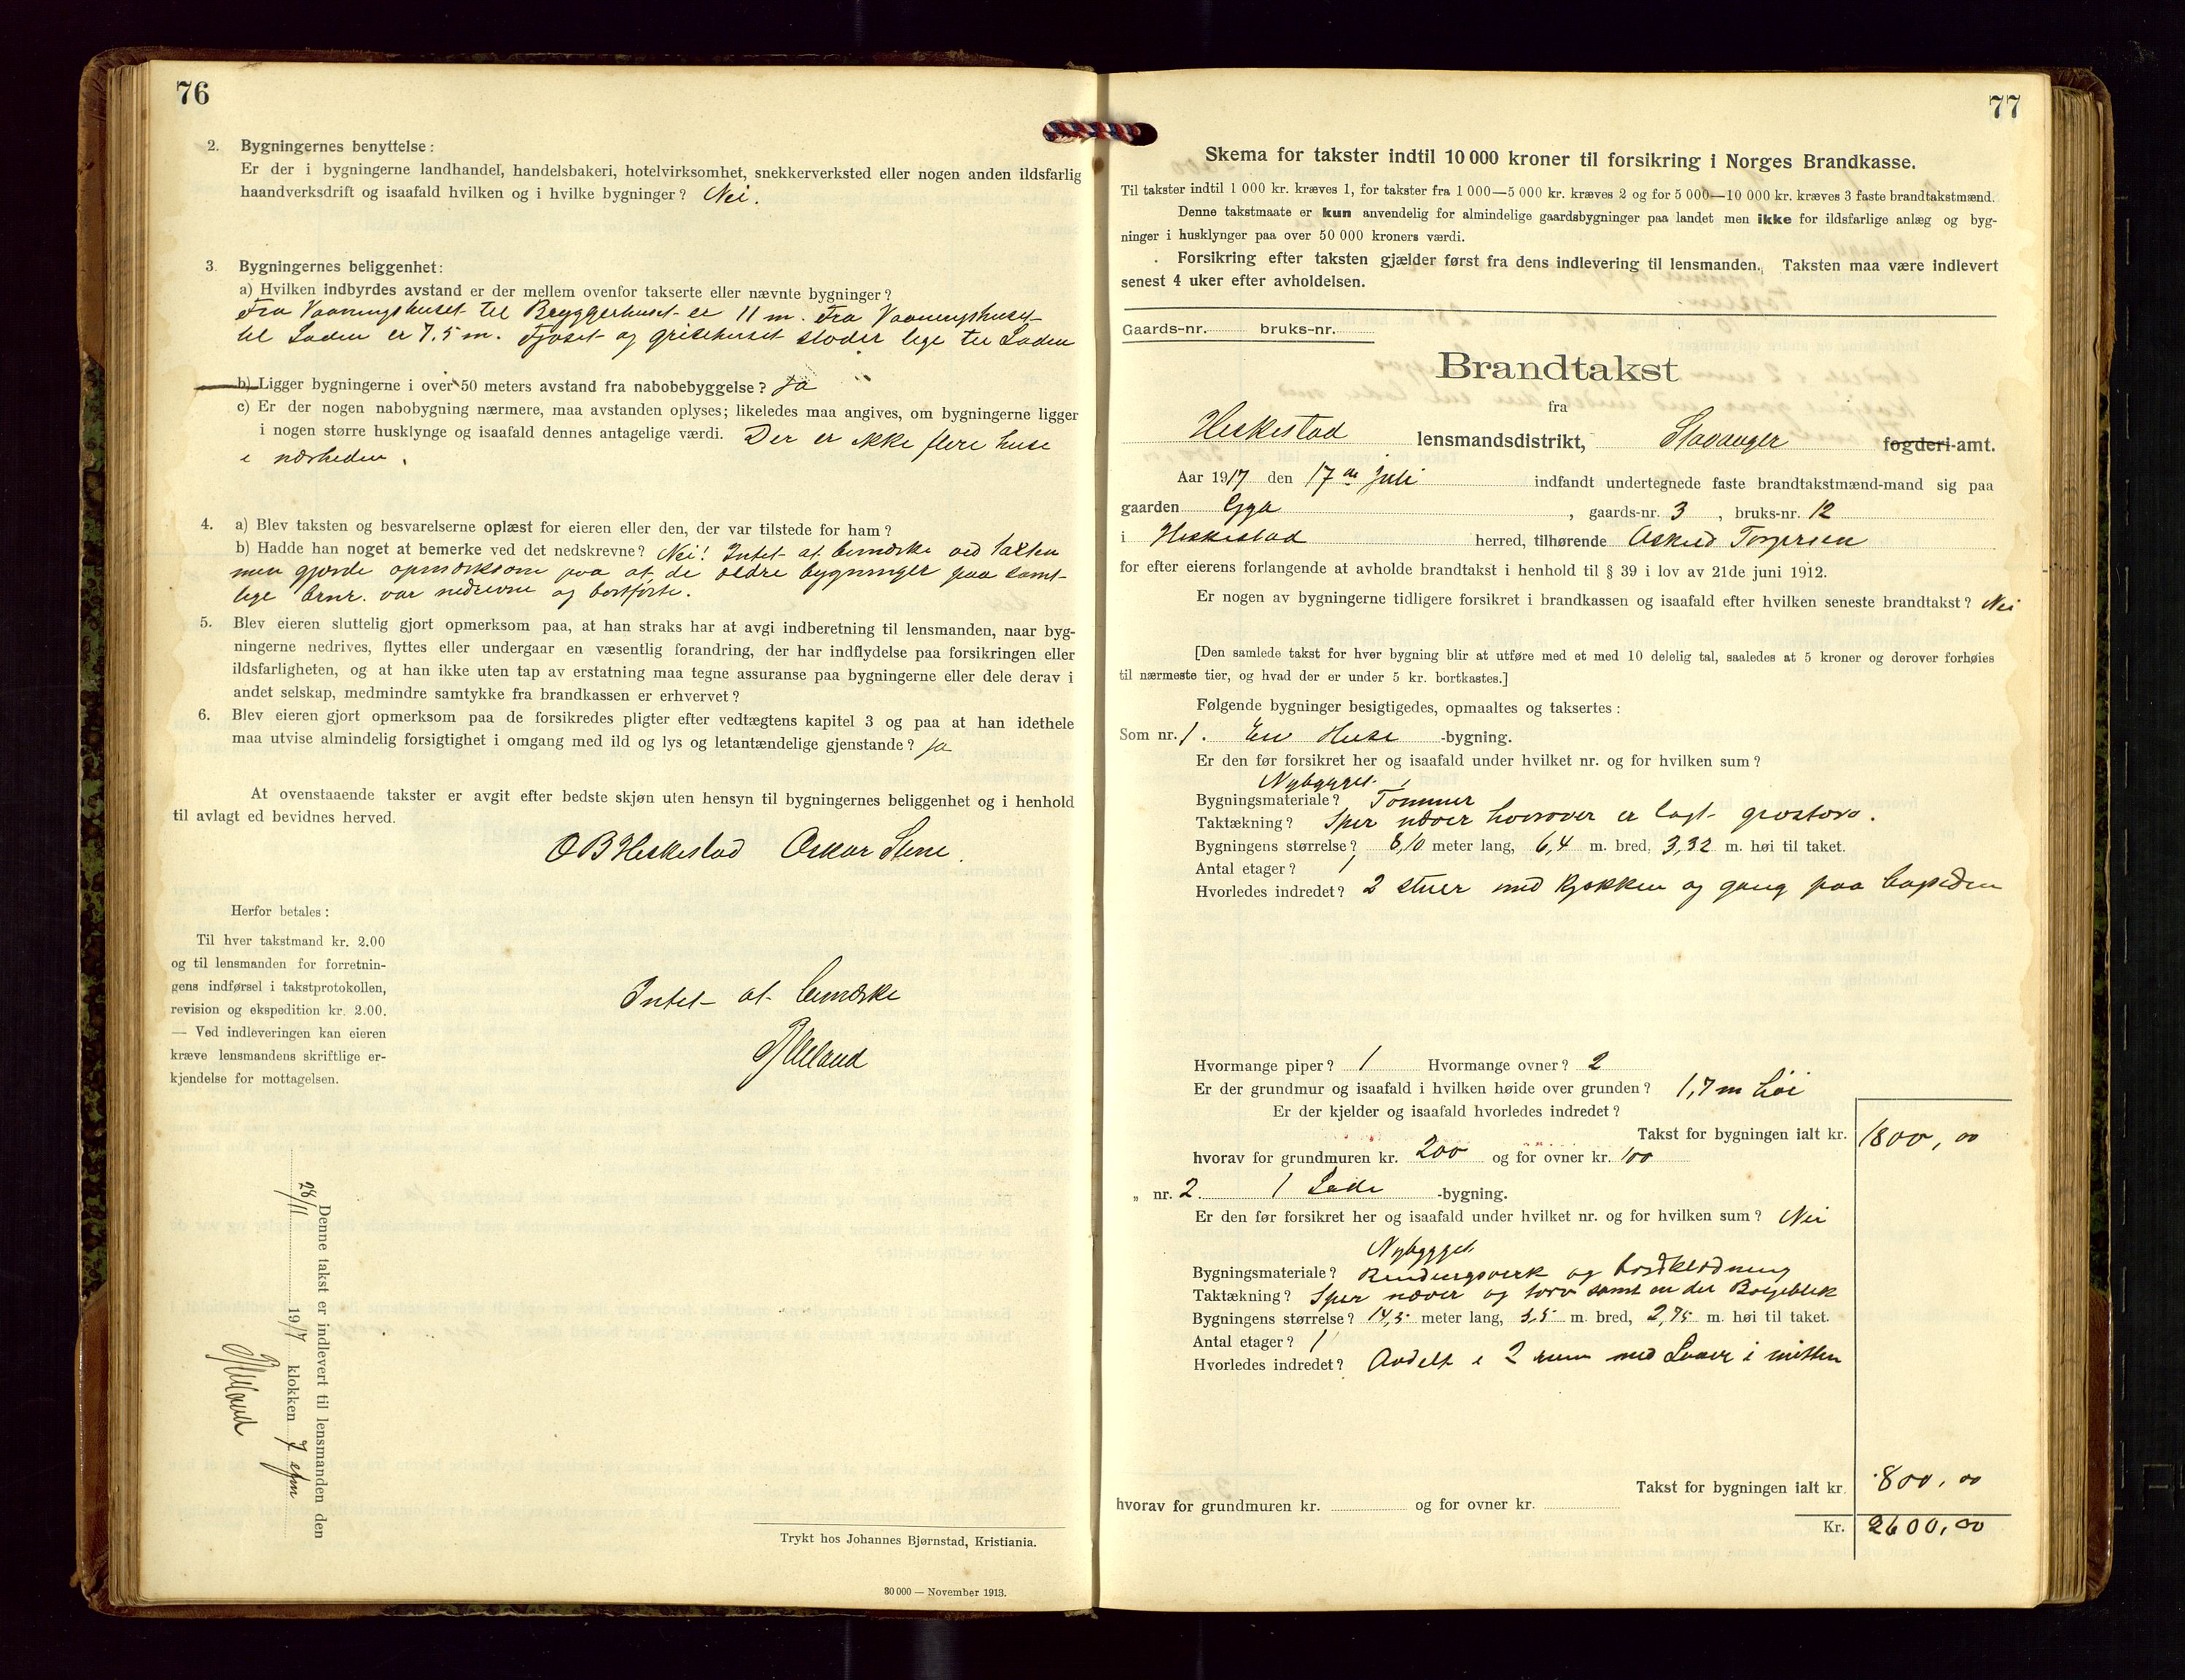 76
2. Bygningernes benyttelse:
Er der i bygningerne landhandel, handelsbakeri, hotelvirksomhet, snekkerverksted eller nogen anden ildsfarlig
haandverksdrift og isaafald hvilken og i hvilke bygninger? Nei.
3. Bygningernes beliggenhet:
a) Hvilken indbyrdes avstand er der mellem ovenfor takserte eller nævnte bygninger?
Fra Vaaningshuset til Bryggerhuset er 11 m. Fra Vaaningshuset
til Laden er 7.5 m. Fjøset og grisehuset støder lige til Laden
b) Ligger bygningerne i over 50 meters avstand fra nabobebyggelse? Ja
c) Er der nogen nabobygning nærmere, maa avstanden oplyses; likeledes maa angives, om bygningerne ligger
i nogen større husklynge og isaafald dennes antagelige værdi. Der er ikke flere huse
i nærheden.
4. a) Blev taksten og besvarelserne oplæst for eieren eller den, der var tilstede for ham?
b) Hadde han noget at bemerke ved det nedskrevne? Nei! Intet at bemærke ved taxten
men gjorde opmærksom paa at de ældre bygninger paa samt-
lige brnr. var nedrevne og bortførte.
5. Blev eieren sluttelig gjort opmerksom paa, at han straks har at avgi indberetning til lensmanden, naar byg-
ningerne nedrives, flyttes eller undergaar en væsentlig forandring, der har indflydelse paa forsikringen eller
ildsfarligheten, og at han ikke uten tap av erstatning maa tegne assuranse paa bygningerne eller dele derav i
andet selskap, medmindre samtykke fra brandkassen er erhvervet?
6. Blev eieren gjort opmerksom paa de forsikredes pligter efter vedtægtens kapitel 3 og paa at han idethele
maa utvise almindelig forsigtighet i omgang med ild og lys og letantændelige gjenstande? Ja
At ovenstaaende takster er avgit efter bedste skjøn uten hensyn til bygningernes beliggenhet og i henhold
til avlagt ed bevidnes herved.
O B Heskestad Oskar Stene.
Herfor betales:
Til hver takstmand kr. 2.00
og til lensmanden for forretnin-
gens indførsel i takstprotokollen,
revision og ekspedition kr. 2.00.
— Ved indleveringen kan eieren
kræve lensmandens skriftlige er-
kjendelse for mottagelsen.
Intet at bemærke
Denne takst er indlevert til lensmanden den
28/11 1917 klokken 7 efm
Trykt hos Johannes Bjørnstad, Kristiania.
30 000 — November 1913.
77
Skema for takster indtil 10 000 kroner til forsikring i Norges Brandkasse.
Til takster indtil 1 000 kr. kræves 1, for takster fra 1 000—5 000 kr. kræves 2 og for 5 000—10 000 kr. kræves 3 faste brandtakstmænd.
Denne takstmaate er kun anvendelig for almindelige gaardsbygninger paa landet men ikke for ildsfarlige anlæg og byg-
ninger i husklynger paa over 50 000 kroners værdi.
Forsikring efter taksten gjælder først fra dens indlevering til lensmanden. Taksten maa være indlevert
senest 4 uker efter avholdelsen.
Gaards-nr. bruks-nr.
Brandtakst
fra
Heskestad lensmandsdistrikt, Stavanger fogderi-amt.
Aar 1917 den 17de Juli indfandt undertegnede faste brandtakstmænd-mand sig paa
gaarden Ega, gaards-nr. 3, bruks-nr. 12
i Heskestad herred, tilhørende Torgersen
for efter eierens forlangende at avholde brandtakst i henhold til § 39 i lov av 21de juni 1912.
Er nogen av bygningerne tidligere forsikret i brandkassen og isaafald efter hvilken seneste brandtakst? Nei
[Den samlede takst for hver bygning blir at utføre med et med 10 delelig tal, saaledes at 5 kroner og derover forhøies
til nærmeste tier, og hvad der er under 5 kr. bortkastes.]
Følgende bygninger besigtigedes, opmaaltes og taksertes:
Som nr. 1. En Huse -bygning.
Er den før forsikret her og isaafald under hvilket nr. og for hvilken sum?
Nybygget
Bygningsmateriale? Tømmer
Taktækning? Sper næver hvorover er lagt græstorv.
Bygningens størrelse? 8,10 meter lang, 6,4 m. bred, 3,32 m. høi til taket.
Antal etager? 1
Hvorledes indredet? 2 stuer med kjøkken og gang paa bagsiden
Hvormange piper? 1 Hvormange ovner? 2
Er der grundmur og isaafald i hvilken høide over grunden? 1,7 m høi
Er der kjelder og isaafald hvorledes indredet?
Takst for bygningen ialt kr. 1800,00
hvorav for grundmuren kr. 200 og for ovner kr. 100
„ nr. 2. 1 Lade -bygning.
Er den før forsikret her og isaafald under hvilket nr. og for hvilken sum? Nei
Nybygget
Bygningsmateriale? Bindingsverk og bordklædning
Taktækning? Sper næver og torv samt en del Bølgeblik
Bygningens størrelse? 14,5 meter lang, 5,5 m. bred, 2,75 m. høi til taket.
Antal etager? 1
Hvorledes indredet? Avdelt i 2 rum med Laave i mitten
Takst for bygningen ialt kr. 800,00
hvorav for grundmuren kr. og for ovner kr.
Kr. 2600,00